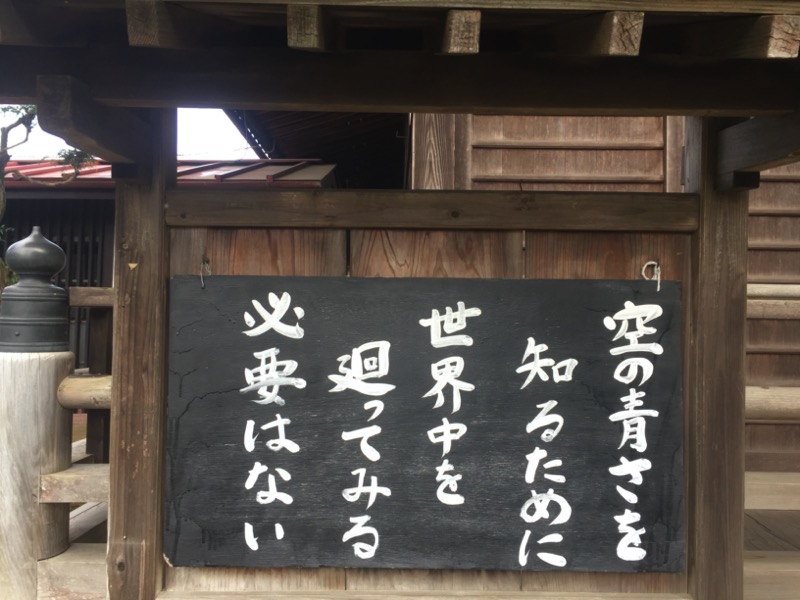 空の青さを
知るために
世界中を
廻ってみる
必要はない